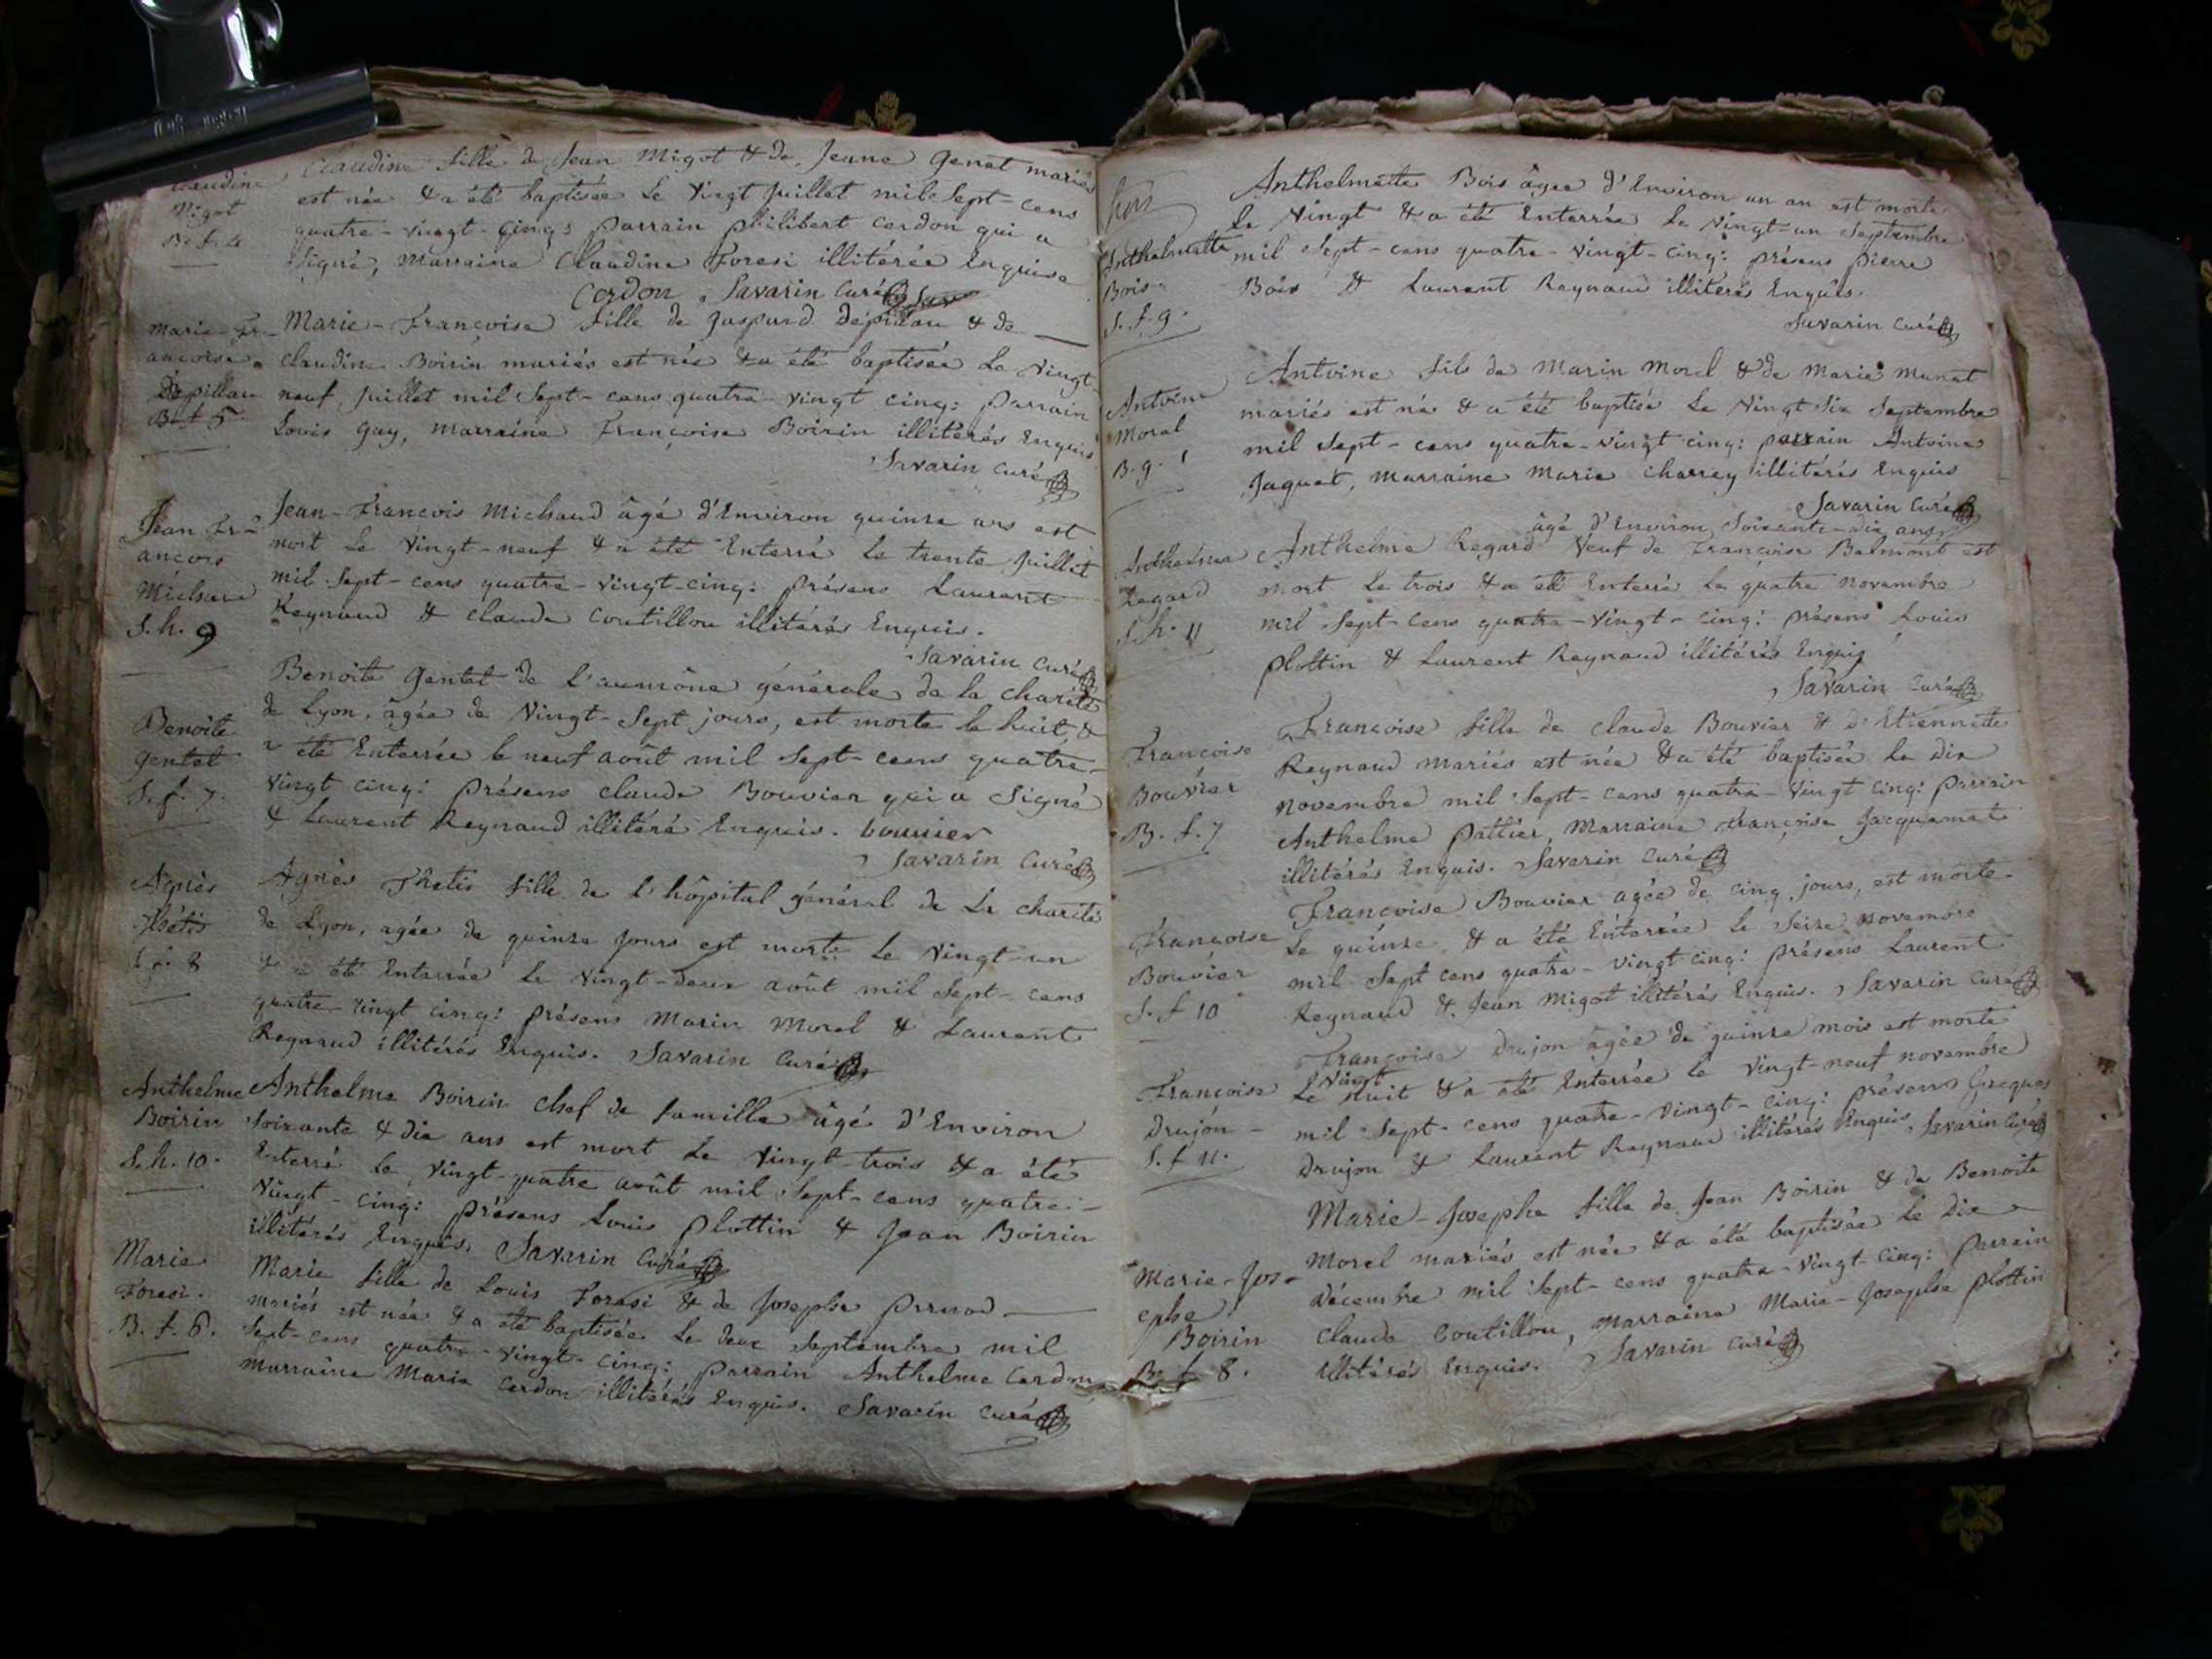 Claudine
Migot
B. f. 4
Claudine fille de Jean Migot & de Jeune Genet mariés
est née & a été baptisée le vingt juillet mil Sept-cens
quatre-vingt-cinq: parrain philibert cerdon qui a
signé, marraine Claudine Foresi illitérée Enquise
cerdon. Savarin curé
Marie-Fr-
ancoise
Depillou
B. f 5
Marie-Francoise fille de Gaspard Depillou & de
claudine Boirin mariés est née & a été baptisée le vingt-
neuf juillet mil Sept-cens quatre-vingt cinq: parrain
Louis Gay, marraine Françoise Boirin illitérés Enquis
Savarin curé
Jean Fr-
ancois
Michaud
S. h. 9
Jean-Francois Michaud âgé d'Environ quinze ans est
mort le vingt-neuf & a été Enterré le trente juillet
mil Sept-cens quatre-vingt-cinq: présens Laurent
Reynaud & claude Coutillon illitérés Enquis.
Savarin curé
Benoite
gentet
S. f. 7.
Benoite gentet de l'aumône générale de la charité
de Lyon, âgée de vingt-Sept jours, est morte le huit, &
a été Enterrée le neuf août mil Sept-cens quatre-
vingt cinq: présens claude Bouvier qui a Signé
& Laurent Reynaud illitéré Enquis. bouvier
Savarin curé
Agnès
thétis
S. f. 8
Agnès Thetis fille de l'hôpital général de la charité
de Lyon, agée de quinze jours est morte le vingt-un
& a été Enterrée le vingt-deux août mil Sept-cens
quatre-vingt cinq: présens Marin Morel & Laurent
Reynaud illitérés Enquis. Savarin curé
Anthelme
Boirin
S. h. 10.
Anthelme Boirin chef de famille âgé d'Environ
Soixante & dix ans est mort le vingt-trois & a été
Enterré le vingt-quatre août mil Sept-cens quatre-
vingt-cinq: présens Louis plottin & Jean Boirin
illitérés Enquis. Savarin curé
Marie
Foresi.
B. f. 6.
Marie fille de Louis Foresi & de Josephe
mariés est née & a été baptisée le deux Septembre mil
Sept-cens quatre-vingt-cinq: parrain Anthelme Cerdon
marraine Marie Cerdon illitérés Enquis. Savarin curé
Anthelmette
Bois
S. f. 9.
Anthelmette Bois âgée d'Environ un an est morte
le vingt & a été Enterrée le vingt-un Septembre
mil Sept-cens quatre-vingt-cinq: présens pierre
Bois & Laurent Reynaud illitérés Enquis.
Savarin curé
Antoine
Morel
B. g. 1
Antoine fils de Marin Morel & de Marie Munet
mariés est né & a été baptisé le vingt Six Septembre
mil Sept-cens quatre-vingt cinq: parrain Antoine
Jaquet, marraine Marie Charrey illitérés Enquis
Savarin curé
Anthelme
Regard
S. h. 11
âgé d'Environ Soixante-dix ans
Anthelme Regard Veuf de Francoise Belmont est
mort le trois & a été Enterré le quatre novembre
mil Sept-cens quatre-vingt-cinq: présens Louis
plottin & Laurent Reynaud illitérés Enquis
Savarin curé
Francoise
Bouvier
B. f. 7
Francoise fille de claude Bouvier & d'Etiennette
Reynaud mariés est née & a été baptisée le dix
novembre mil Sept-cens quatre-vingt cinq: parrain
Anthelme pattier, Marraine françoise Jacquemet
illitérés Enquis. Savarin curé
Francoise
Bouvier
S. f 10
Francoise Bouvier agée de cinq jours, est morte
le quinze & a été Enterrée le Seize novembre
mil Sept cens quatre-vingt cinq: présens Laurent
Reynaud & Jean Migot illitérés Enquis. Savarin curé
Françoise
Drujon
S. f 11.
Françoise Drujon agée de quinze mois est morte
vingt
le huit & a été Enterrée le vingt-neuf novembre
mil Sept-cens quatre-vingt-cinq: présens Jacques
Drujon & Laurent Reynaud illitérés Enquis. Savarin curé
Marie-Jos-
ephe
Boirin
B. f 8.
Marie-Josephe fille de Jean Boirin & de Benoite
Morel mariés est née & a été baptisée le dix
décembre mil Sept-cens quatre-vingt-cinq: parrain
Claude Coutillon, marraine Marie-Josephe plottin
illitérés Enquis. Savarin curé